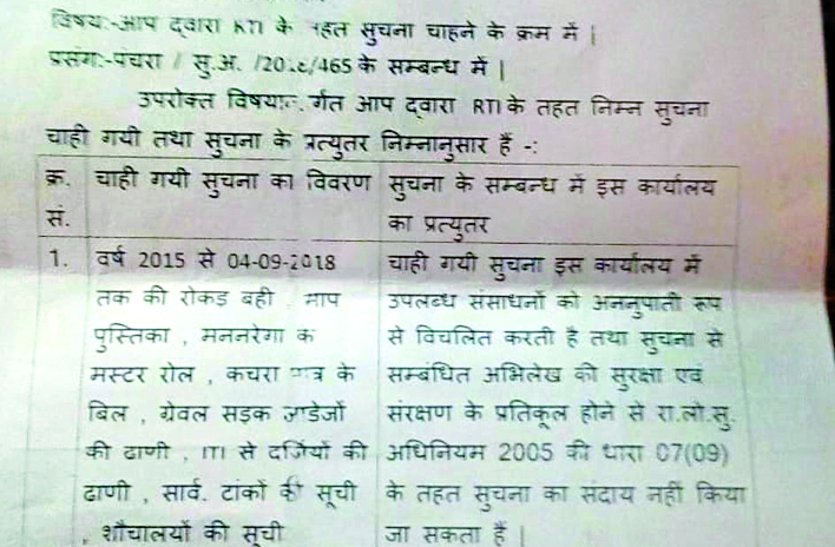 विषय:-आप द्वारा RTI के तहत सुचना चाहने के क्रम में |
प्रसंग:-पंचरा / सु.अ. /20 /465 के सम्बन्ध में |
उपरोक्त आप द्वारा RTI के तहत निम्न सुचना
चाही गयी तथा सुचना के प्रत्युतर निम्नानुसार हैं -:
क्र. सं.
चाही गयी सुचना का विवरण
सुचना के सम्बन्ध में इस कार्यालय
का प्रत्युतर
1.
वर्ष 2015 से 04-09-2018
तक की रोकड बही , माप
पुस्तिका , मननरेगा क
मस्टर रोल , कचरा पात्र के
बिल , ग्रेवल सड़क जाडेजों
की ढाणी , ITI से दर्जियों की
ढाणी , सार्व. टांकों की सूची
, शौचालयों की सूची
चाही गयी सुचना इस कार्यालय में
उपलब्ध संसाधनों को अननुपाती रूप
से विचलित करती है तथा सुचना से
सम्बंधित अभिलेख की सुरक्षा एवं
संरक्षण के प्रतिकूल होने से रा.लो.सु.
अधिनियम 2005 की धारा 07(09)
के तहत सुचना का संदाय नहीं किया
जा सकता हैं |